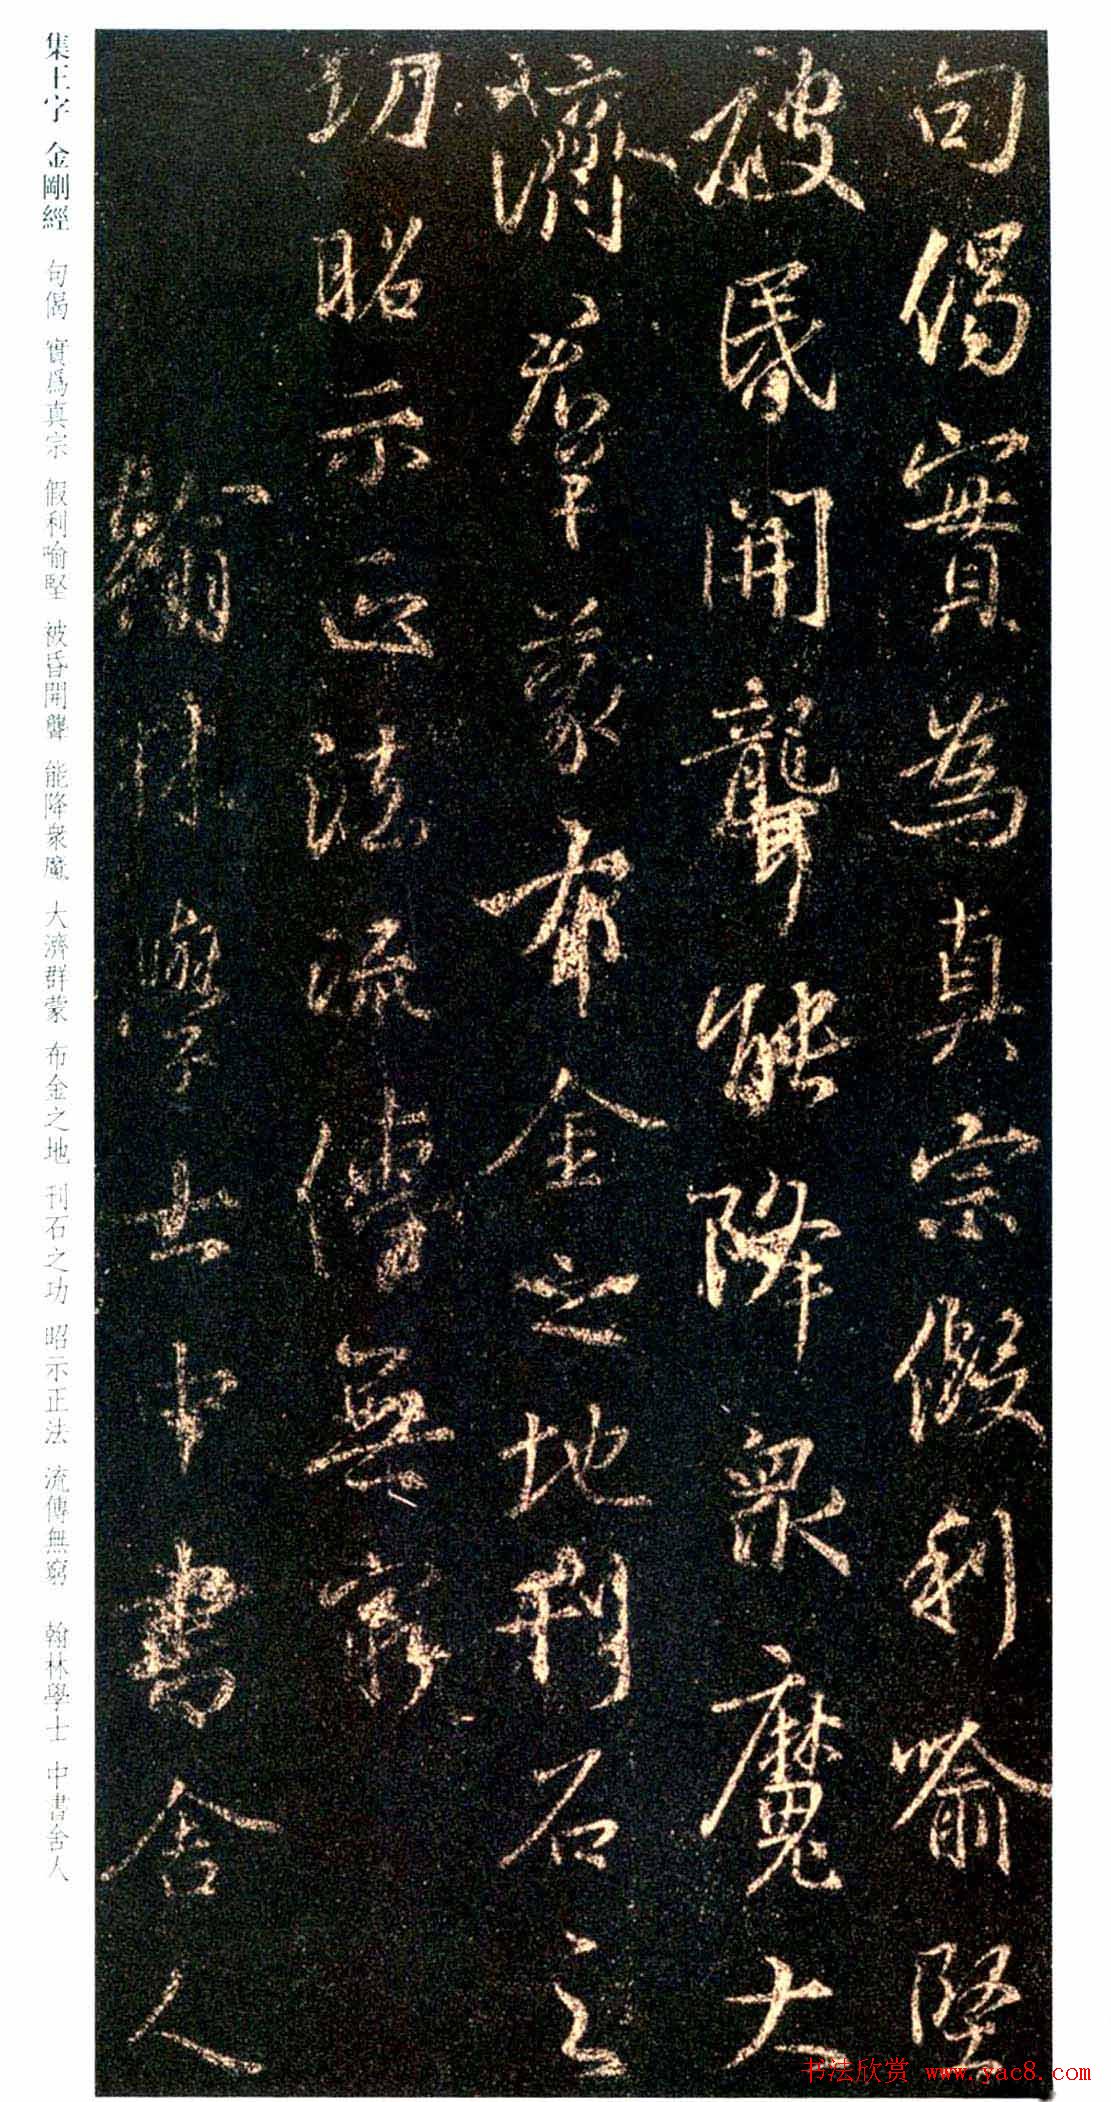 句偈實為真宗假利喻堅
破昏開聾能降衆魔大
濟羣蒙布金之地刊石之
功昭示正法流傳無窮
翰林學士中書舍人
集王字 金剛經 句偈 實爲真宗 假利喻堅 被昏開聾 能降衆魔 大濟群蒙 布金之地 刊石之功 昭示正法 流傳無窮 翰林學士 中書舍人
书法欣赏 www.yac8.com